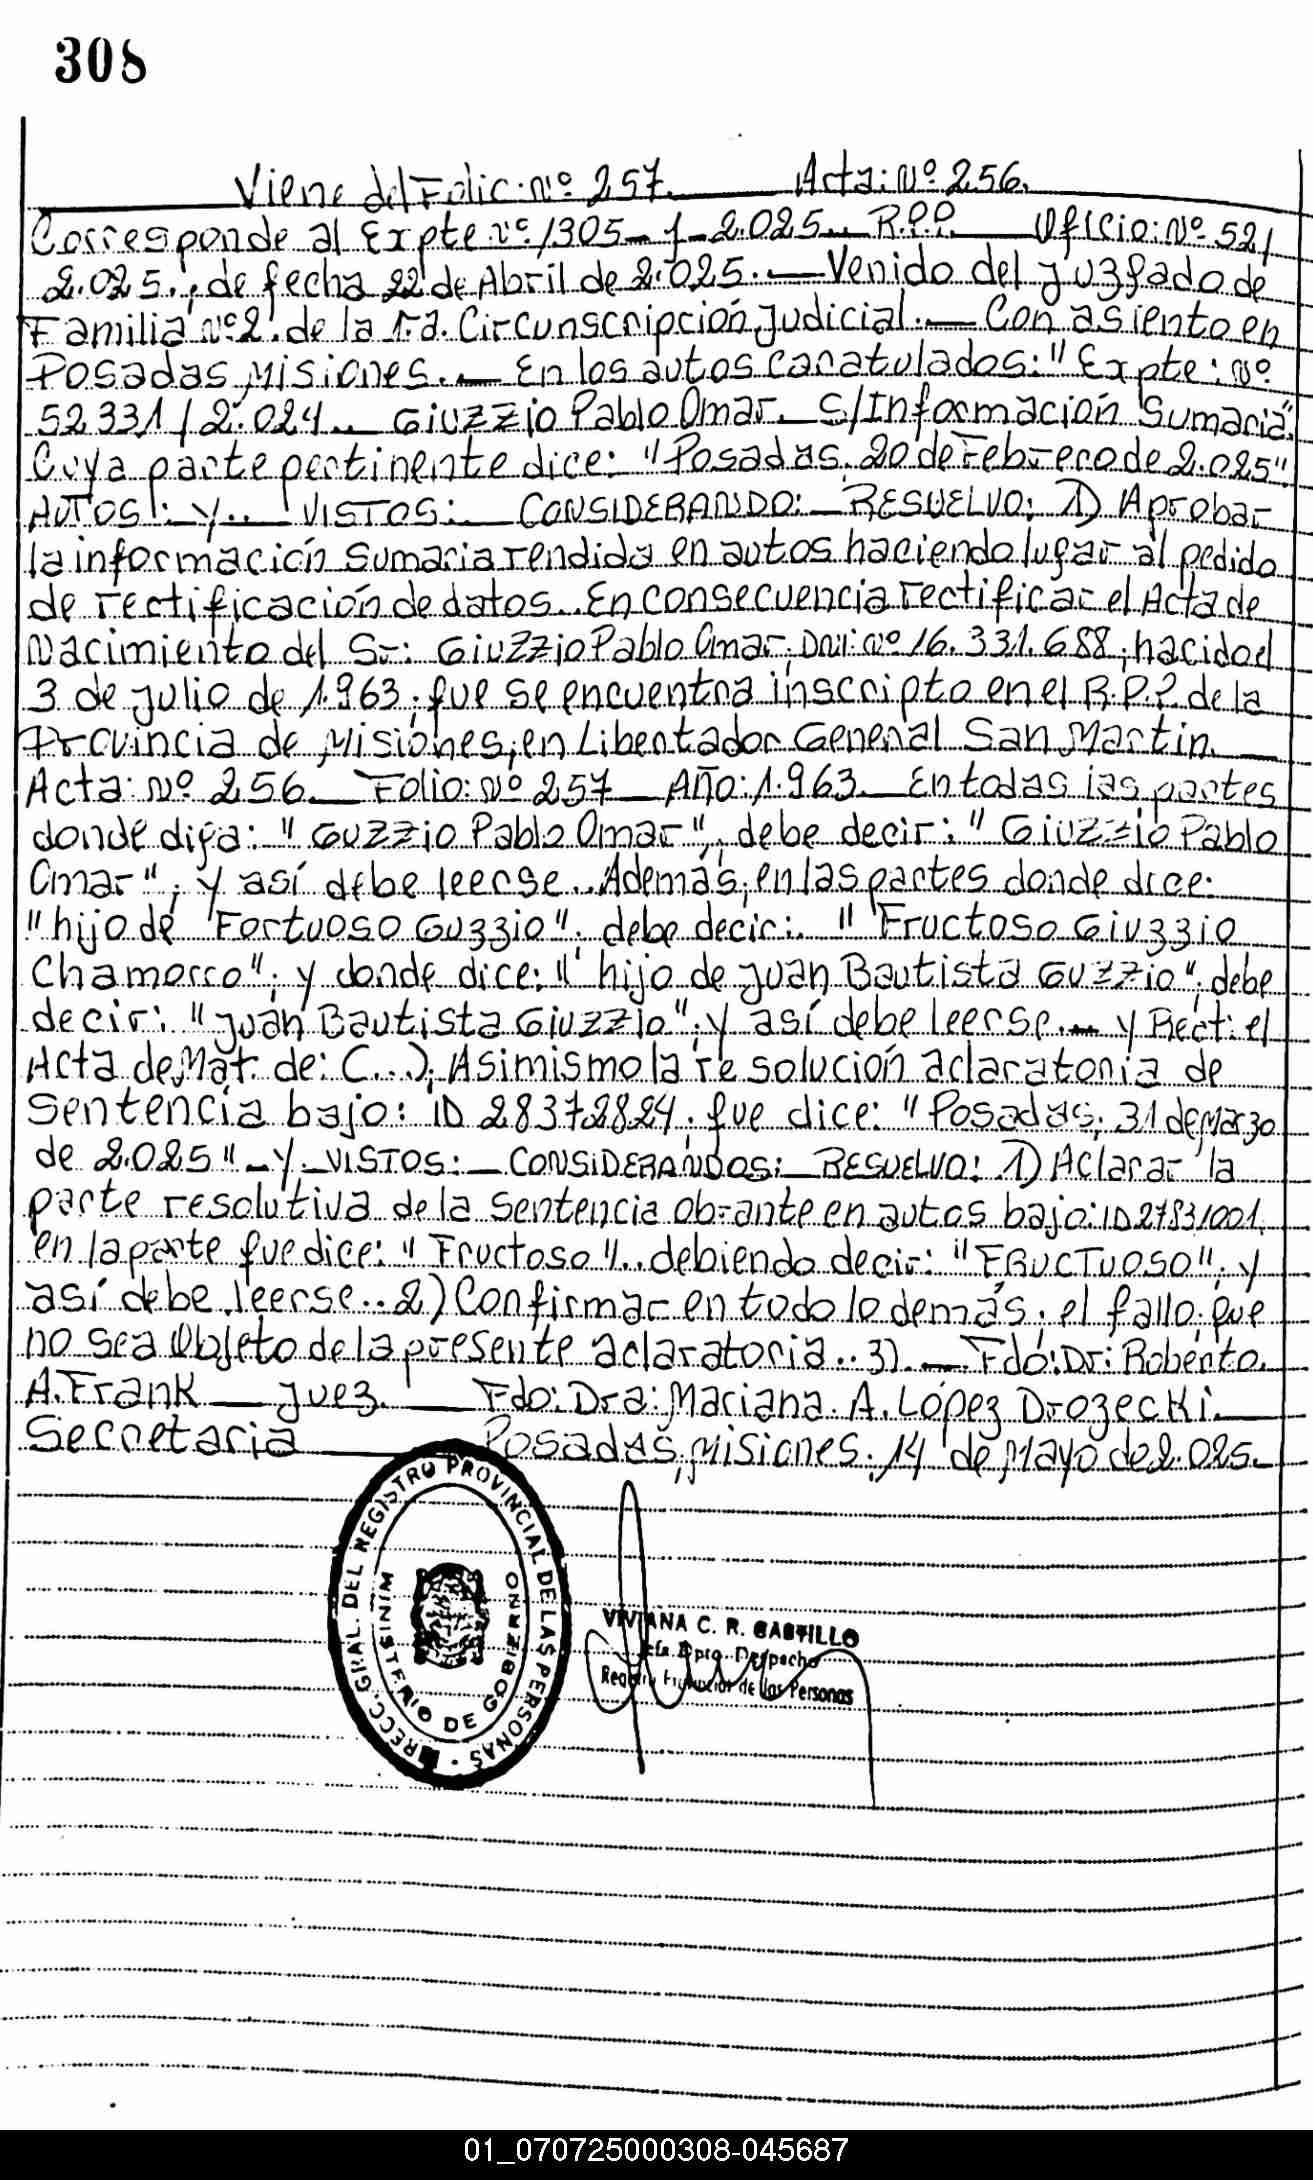 308
Viene del Folio: Nº 257. Acta: Nº 256.
Corresponde al Expte Nº 1305-1-2.025.. R.P.P. Oficio: Nº 52/
2.025.; de fecha 22 de Abril de 2.025.— Venido del Juzgado de
Familia Nº 2. de la 1ra. Circunscripción Judicial.— Con asiento en
Posadas, Misiones.— En los autos caratulados: "Expte: Nº
52331/2.024.. GIUZZIO Pablo Omar. S/Información Sumaria".
Cuya parte pertinente dice: "Posadas, 20 de Febrero de 2.025"
AUTOS: Y.. VISTOS: CONSIDERANDO: RESUELVO: 1) Aprobar
la información Sumaria rendida en autos haciendo lugar al pedido
de rectificación de datos.. En consecuencia rectificar el Acta de
Nacimiento del Sr: GIUZZIO Pablo Omar, DNI: Nº 16.331.688, nacido el
3 de Julio de 1.963; que se encuentra inscripto en el R.P.P. de la
Provincia de Misiones, en Libertador General San Martin.
Acta: Nº 256.— Folio: Nº 257— Año: 1.963.— En todas las partes
donde diga: "GUZZIO Pablo Omar", debe decir: "GIUZZIO Pablo
Omar"; y así debe leerse.. Además, en las partes donde dice:
"hijo de Fortuoso Guzzio". debe decir:. "Fructoso Giuzzio
Chamorro"; y donde dice: "hijo de Juan Bautista GUZZIO", debe
decir: "Juan Bautista GIUZZIO"; y así debe leerse.— y Rect: el
Acta de Mat. de: (...). Asimismo la resolución aclaratoria de
Sentencia bajo: ID 28372824. que dice: "Posadas, 31 de Marzo
de 2.025" — Y — VISTOS: — CONSIDERANDOS: — RESUELVO: 1) Aclarar la
parte resolutiva de la Sentencia obrante en autos bajo: ID 27831001.
en la parte que dice: "Fructoso".. debiendo decir: "FRUCTUOSO"; y
así debe leerse.. 2) Confirmar en todo lo demás, el fallo que
no sea Objeto de la presente aclaratoria.. 3).— Fdo: Dr: Roberto
A. Frank — Juez.— Fdo: Dra: Mariana. A. López Drozecki.—
Secretaria — Posadas, Misiones, 14 de Mayo de 2.025.—
DIRECC. GRAL. DEL REGISTRO PROVINCIAL DE LAS PERSONAS
MINISTERIO DE GOBIERNO
VIVIANA C. R. CASTILLO
Jefa Dpto. Despacho
Registro Provincial de las Personas
01_070725000308-045687